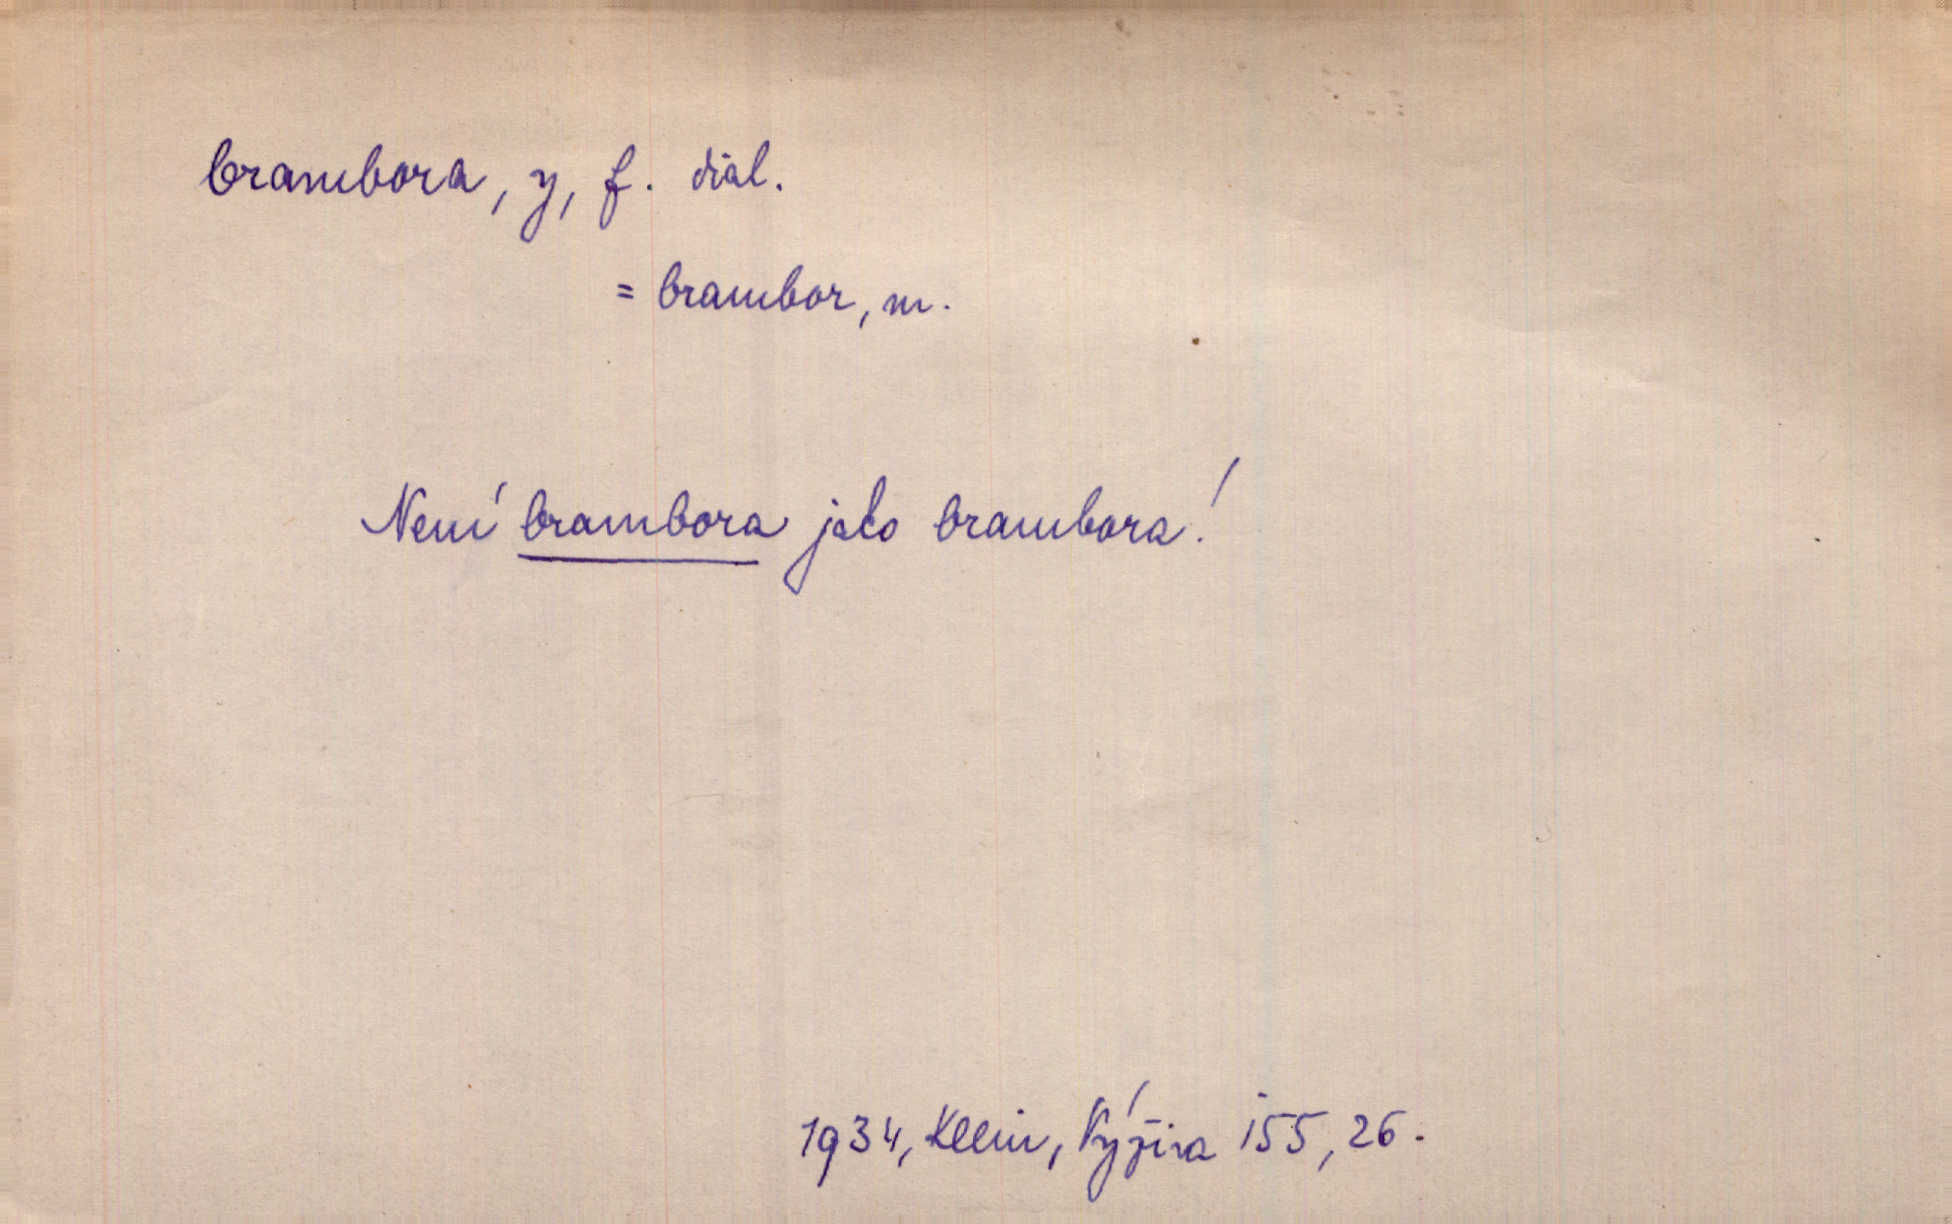 brambora, y, f. dial.
= brambor, m.
Není brambora jako brambora!
1934, Klein, Výživa 155, 26.